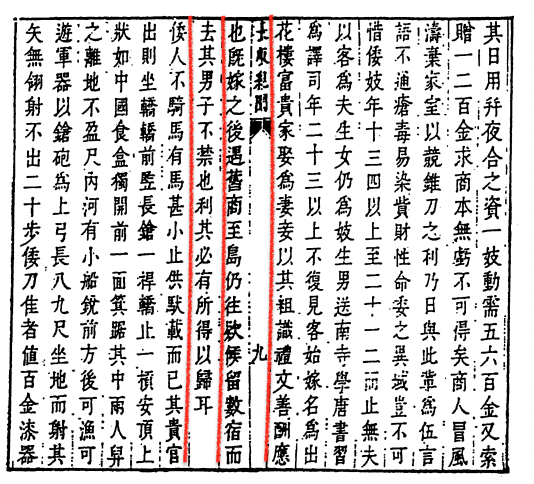 其日用并夜合之資一妓動需五六百金又索
贈一二百金求商本無虧不可得矣商人冒風
濤棄家室以競錐刀之利乃日與此輩爲伍言
語不通瘡毒易染貲財性命委之異域豈不可
惜倭妓年十三四以上至二十一二而止無夫
以客爲夫生女仍爲妓生男送南寺學唐書習
爲譯司年二十三以上不復見客始嫁名爲出
花樓富貴家娶爲妻妾以其祖識禮文善酬應
九
也旣嫁之後遇舊商至島仍往欵候留數宿而
去其男子不禁也利其必有所得以歸耳
倭人不騎馬有馬甚小止供馱載而已其貴官
出則坐轎轎前竪長鎗一桿轎止一槓安頂上
狀如中國食盒獨開前一面箕踞其中兩人舁
之離地不盈尺內河有小船銳前方後可漁可
遊軍器以鎗砲爲上弓長八九尺坐地而射其
矢無翎射不出二十步倭刀佳者値百金漆器